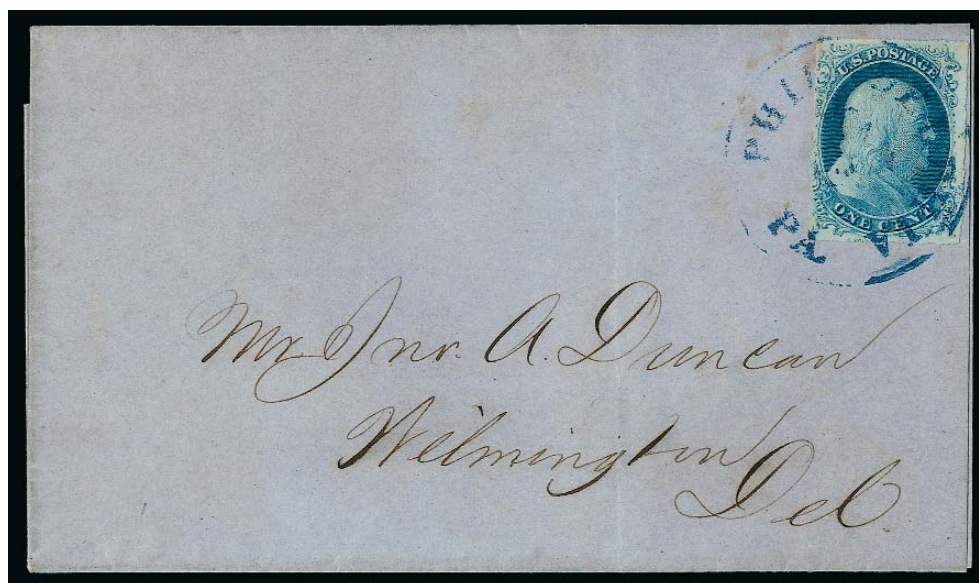 U.S. POSTAGE
ONE CENT
PA
Mr. Jno. A. Duncan
Wilmington
Del